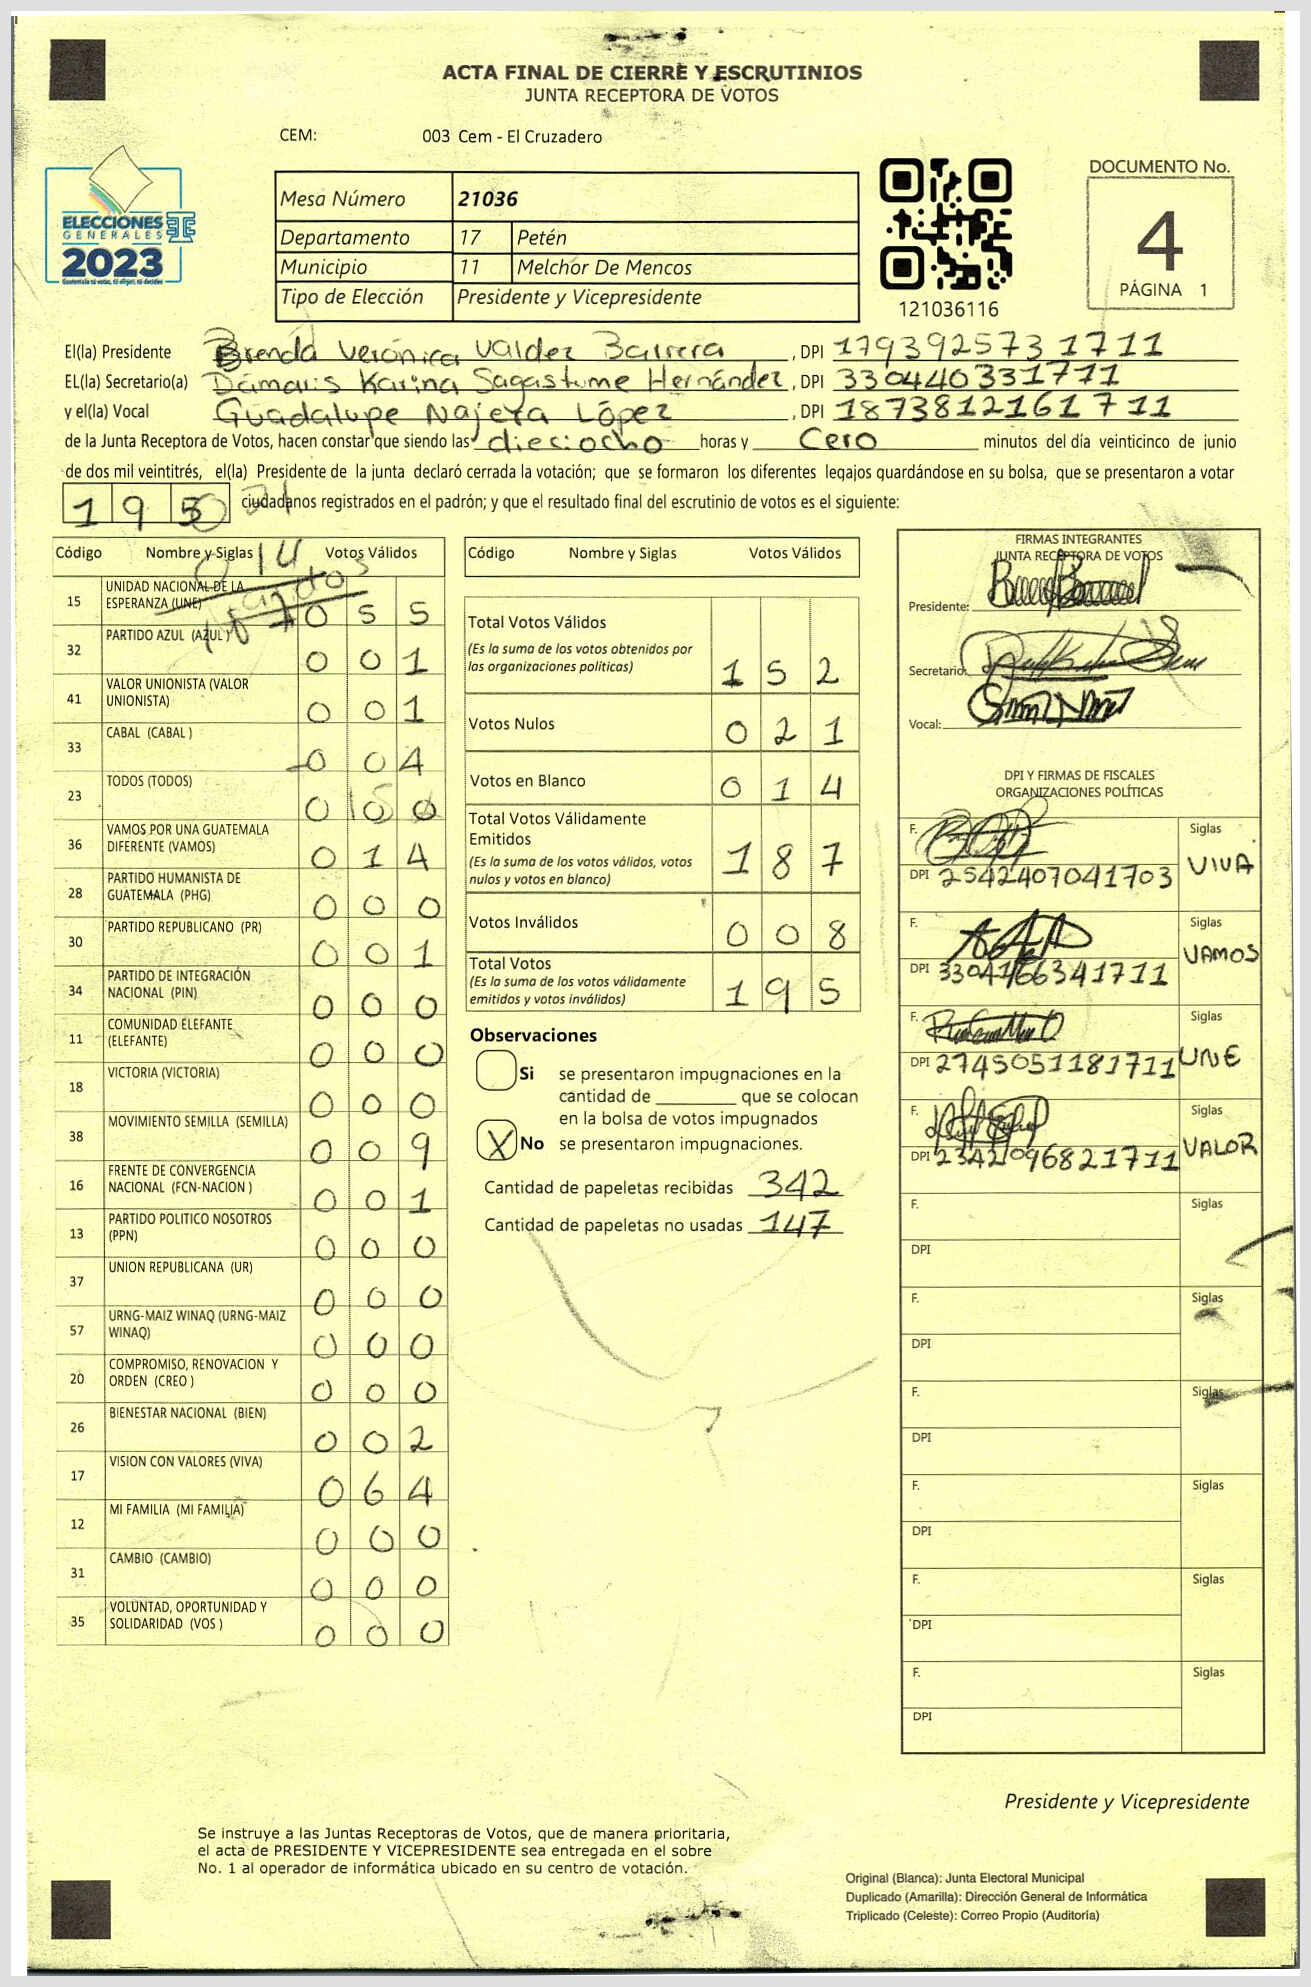 ACTA FINAL DE CIERRE Y ESCRUTINIOS
JUNTA RECEPTORA DE VOTOS
CEM: 003 Cem - El Cruzadero
ELECCIONES
GENERALES
2023
Mesa Número 21036
Departamento 17 Petén
Municipio 11 Melchor De Mencos
Tipo de Elección Presidente y Vicepresidente
121036116
DOCUMENTO No.
4
PÁGINA 1
El(la) Presidente Brenda Verónica Valdez Barrera, DPI 1793925731711
EL(la) Secretario(a) Dámaris Karina Sagastume Hernández, DPI 330440331711
y el(la) Vocal Guadalupe Najera López, DPI 1873812161711
de la Junta Receptora de Votos, hacen constar que siendo las dieciocho horas y Cero minutos del día veinticinco de junio
de dos mil veintitrés, el(la) Presidente de la junta declaró cerrada la votación; que se formaron los diferentes legajos quardándose en su bolsa, que se presentaron a votar
195 ciudadanos registrados en el padrón; y que el resultado final del escrutinio de votos es el siguiente:
Código Nombre y Siglas Votos Válidos
15 UNIDAD NACIONAL DE LA ESPERANZA (UNE) 0 5 5
32 PARTIDO AZUL (AZUL) 0 0 1
41 VALOR UNIONISTA (VALOR UNIONISTA) 0 0 1
33 CABAL (CABAL ) 0 0 4
23 TODOS (TODOS) 0 0 0
36 VAMOS POR UNA GUATEMALA DIFERENTE (VAMOS) 0 1 4
28 PARTIDO HUMANISTA DE GUATEMALA (PHG) 0 0 0
30 PARTIDO REPUBLICANO (PR) 0 0 1
34 PARTIDO DE INTEGRACIÓN NACIONAL (PIN) 0 0 0
11 COMUNIDAD ELEFANTE (ELEFANTE) 0 0 0
18 VICTORIA (VICTORIA) 0 0 0
38 MOVIMIENTO SEMILLA (SEMILLA) 0 0 9
16 FRENTE DE CONVERGENCIA NACIONAL (FCN-NACION ) 0 0 1
13 PARTIDO POLITICO NOSOTROS (PPN) 0 0 0
37 UNION REPUBLICANA (UR) 0 0 0
57 URNG-MAIZ WINAQ (URNG-MAIZ WINAQ) 0 0 0
20 COMPROMISO, RENOVACION Y ORDEN (CREO ) 0 0 0
26 BIENESTAR NACIONAL (BIEN) 0 0 2
17 VISION CON VALORES (VIVA) 0 6 4
12 MI FAMILIA (MI FAMILIA) 0 0 0
31 CAMBIO (CAMBIO) 0 0 0
35 VOLUNTAD, OPORTUNIDAD Y SOLIDARIDAD (VOS ) 0 0 0
Código Nombre y Siglas Votos Válidos
Total Votos Válidos
(Es la suma de los votos obtenidos por
las organizaciones políticas) 1 5 2
Votos Nulos 0 2 1
Votos en Blanco 0 1 4
Total Votos Válidamente
Emitidos
(Es la suma de los votos válidos, votos
nulos y votos en blanco) 1 8 7
Votos Inválidos 0 0 8
Total Votos
(Es la suma de los votos válidamente
emitidos y votos inválidos) 1 9 5
Observaciones
Si se presentaron impugnaciones en la
cantidad de ________ que se colocan
en la bolsa de votos impugnados
X No se presentaron impugnaciones.
Cantidad de papeletas recibidas 342
Cantidad de papeletas no usadas 147
FIRMAS INTEGRANTES
JUNTA RECEPTORA DE VOTOS
Presidente:
Secretario:
Vocal:
DPI Y FIRMAS DE FISCALES
ORGANIZACIONES POLÍTICAS
F. Siglas
DPI 2542407041703 VIVA
F. Siglas
DPI 3304166341711 VAMOS
F. Siglas
DPI 2745051181711 UNE
F. Siglas
DPI 2342096821711 VALOR
F. Siglas
DPI
F. Siglas
DPI
F. Siglas
DPI
F. Siglas
DPI
F. Siglas
DPI
F. Siglas
DPI
Presidente y Vicepresidente
Se instruye a las Juntas Receptoras de Votos, que de manera prioritaria,
el acta de PRESIDENTE Y VICEPRESIDENTE sea entregada en el sobre
No. 1 al operador de informática ubicado en su centro de votación.
Original (Blanca): Junta Electoral Municipal
Duplicado (Amarilla): Dirección General de Informática
Triplicado (Celeste): Correo Propio (Auditoría)